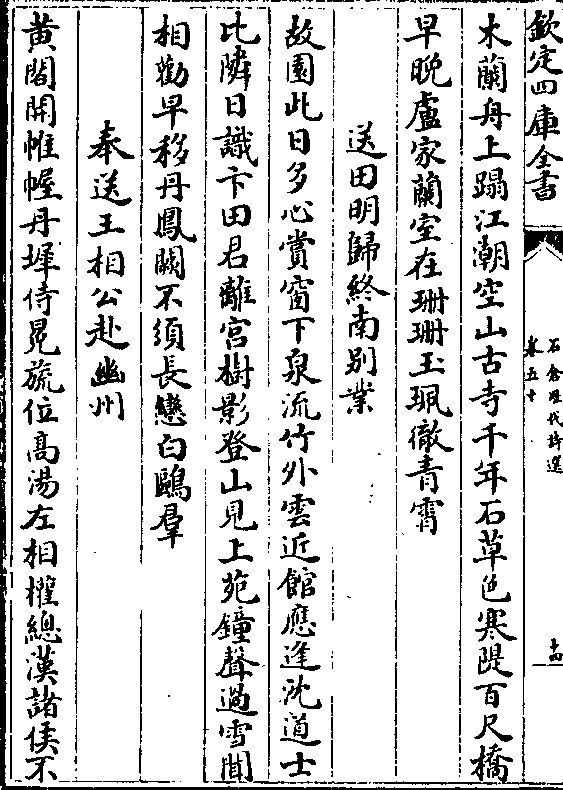 欽定四庫全書
石倉歴代詩選
卷五十
十四
木蘭舟上蹋江潮空山古寺千年石草色寒隄百尺橋
早晚盧家蘭室在珊珊玉珮徹青霄
送田明歸終南别業
故園此日多心賞窗下泉流竹外雲近館應逢沈道士
比隣日識卞田君離宮樹影登山見上苑鐘聲過雪聞
相勸早移丹鳳闕不須長戀白鷗羣
奉送王相公赴幽州
黄閤開帷幄丹墀侍冕旒位髙湯左相權總漢諸侯不